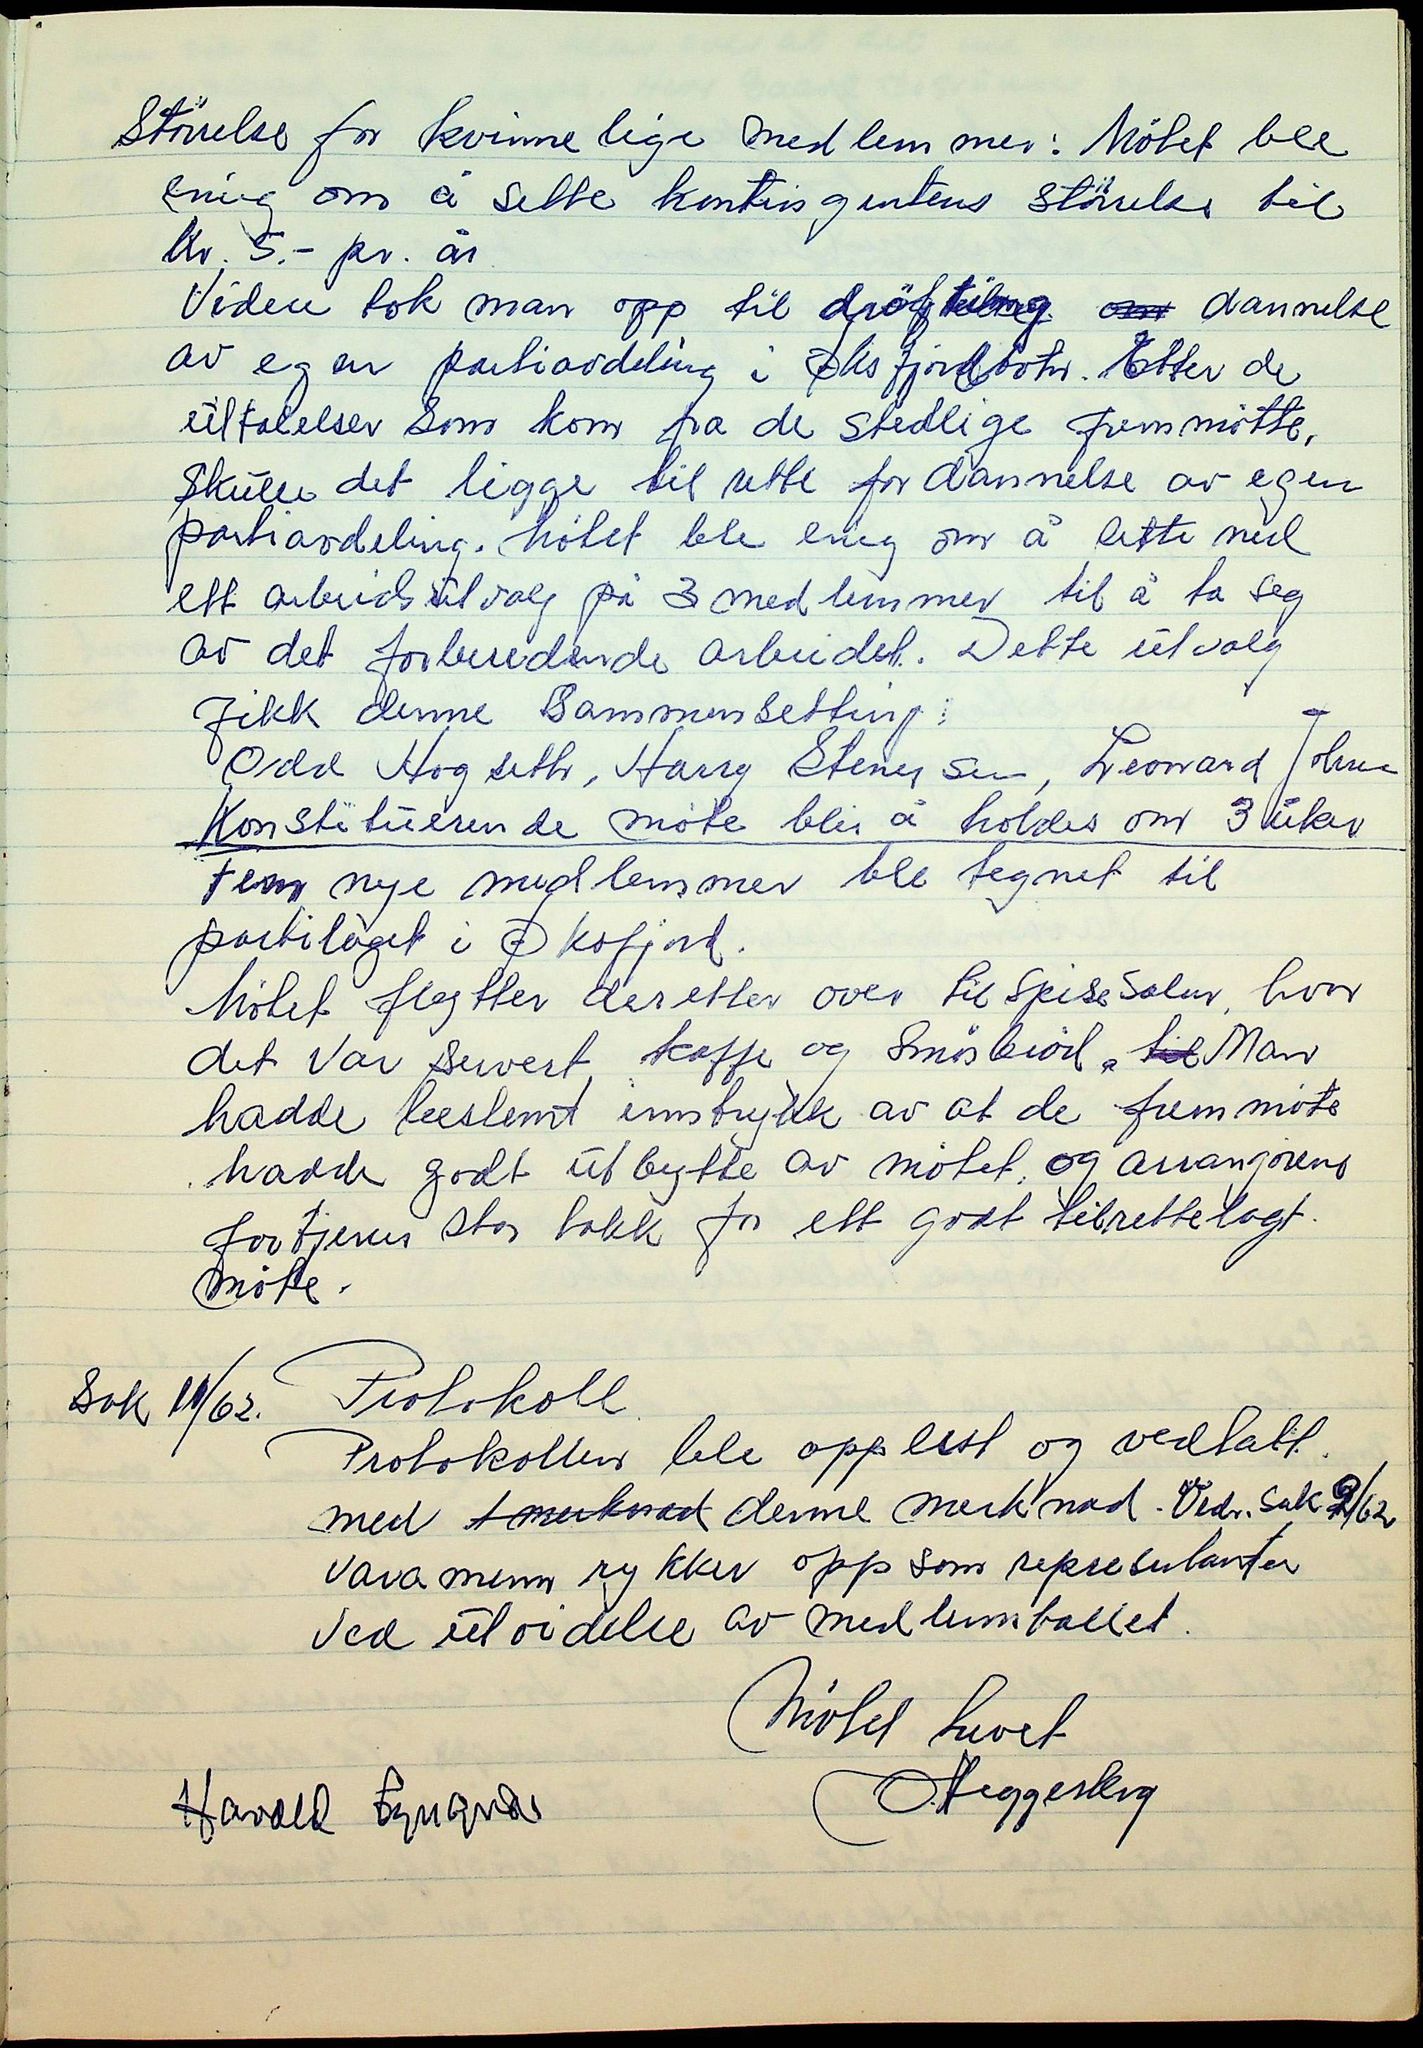 Störrelse for kvinnelige medlemmer: Mötet ble
enig om å sette kontingentens störrelse til
kr. 5.- pr. år
Videre tok man opp til dröfting om dannelse
av egen partiavdeling i Øksfjordbotn. Etter de
uttalelser som kom fra de stedlige fremmötte,
skulle det ligge til rette for dannelse av egen
partiavdeling. Mötet ble enig om å sette ned
ett arbeidsutvalg på 3 medlemmer til å ta seg
av det forberedende arbeidet. Dette utvalg
fikk denne sammensetting:
Odd Hogseth, Harry Stenersen, Leonard Johnsen
Konstituerende möte blir å holdes om 3 uker
Fem nye medlemmer ble tegnet til
partilaget i Øksfjord.
Mötet flytter deretter over til spisesalen, hvor
det var servert kaffe og smörbröd. til Man
hadde bestemt inntrykk av at de fremmöte
hadde godt utbytte av mötet, og arrangörene
fortjener stor takk for ett godt tilrettelagt
möte.
Sak 11/62. Protokoll
Protokollen ble opplest og vedtatt.
med 1 merknad denne merknad. Vedr. Sak 9/62
varamenn rykker opp som representanter
ved utvidelse av medlemtallet.
Mötet hevet
Heggesberg
Harald